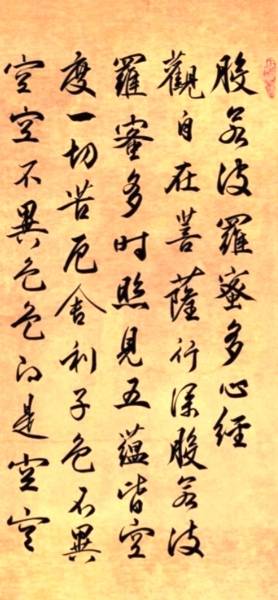 般若波羅蜜多心經
觀自在菩薩行深般若波
羅蜜多时照見五蘊皆空
度一切苦厄舍利子色不異
空空不異色色即是空空